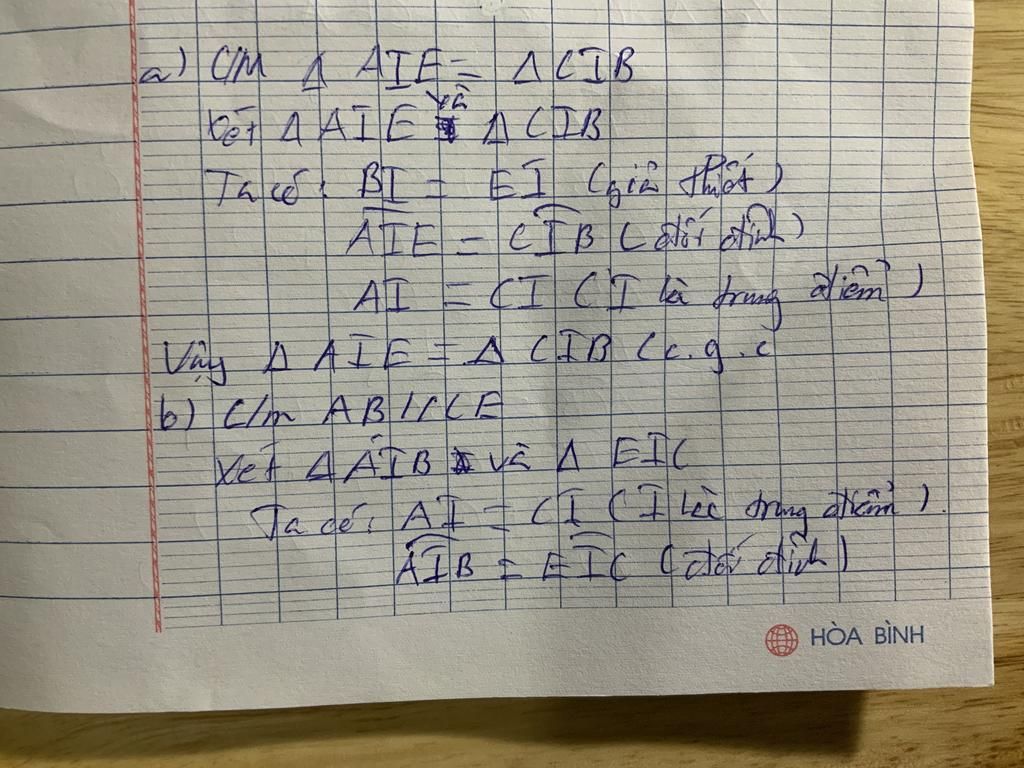 a) C/M Δ AIE = Δ CIB
Xét Δ AIE và Δ CIB
Ta có: BI = EI (giả thiết)
AIE = CIB (đối đỉnh)
AI = CI (I là trung điểm)
Vậy Δ AIE = Δ CIB (c.g.c
b) C/m AB // CE
Xét Δ AIB và Δ EIC
Ta có: AI = CI (I là trung điểm).
AIB = EIC (đối đỉnh)
HÒA BÌNH